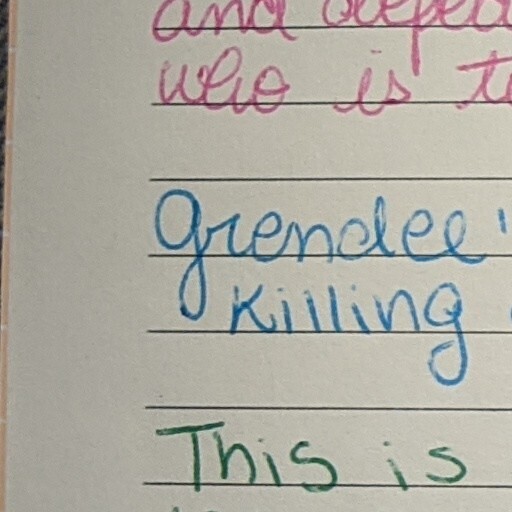 and
who is
Grendel'
killing
This is